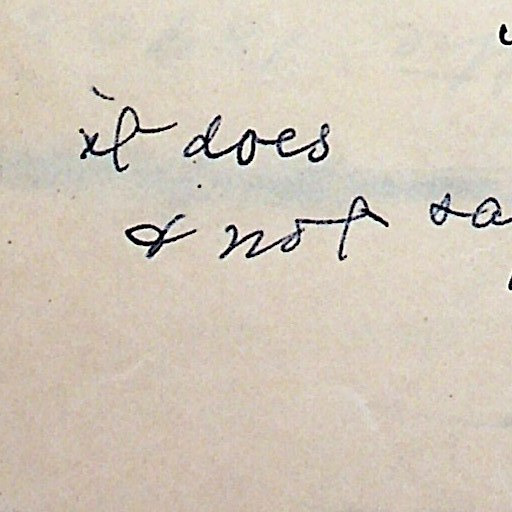 it does
& not sa